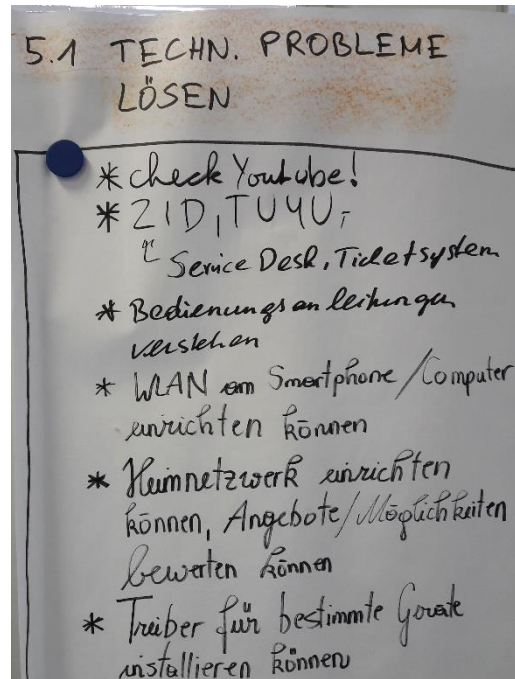 5.1 TECHN. PROBLEME
LÖSEN
* check Youtube!
* ZID, TU4U,
Service Desk, Ticketsystem
* Bedienungsanleitungen
verstehen
* WLAN am Smartphone/Computer
einrichten können
* Heimnetzwerk einrichten
können, Angebote/Möglichkeiten
bewerten können
* Treiber für bestimmte Geräte
installieren können